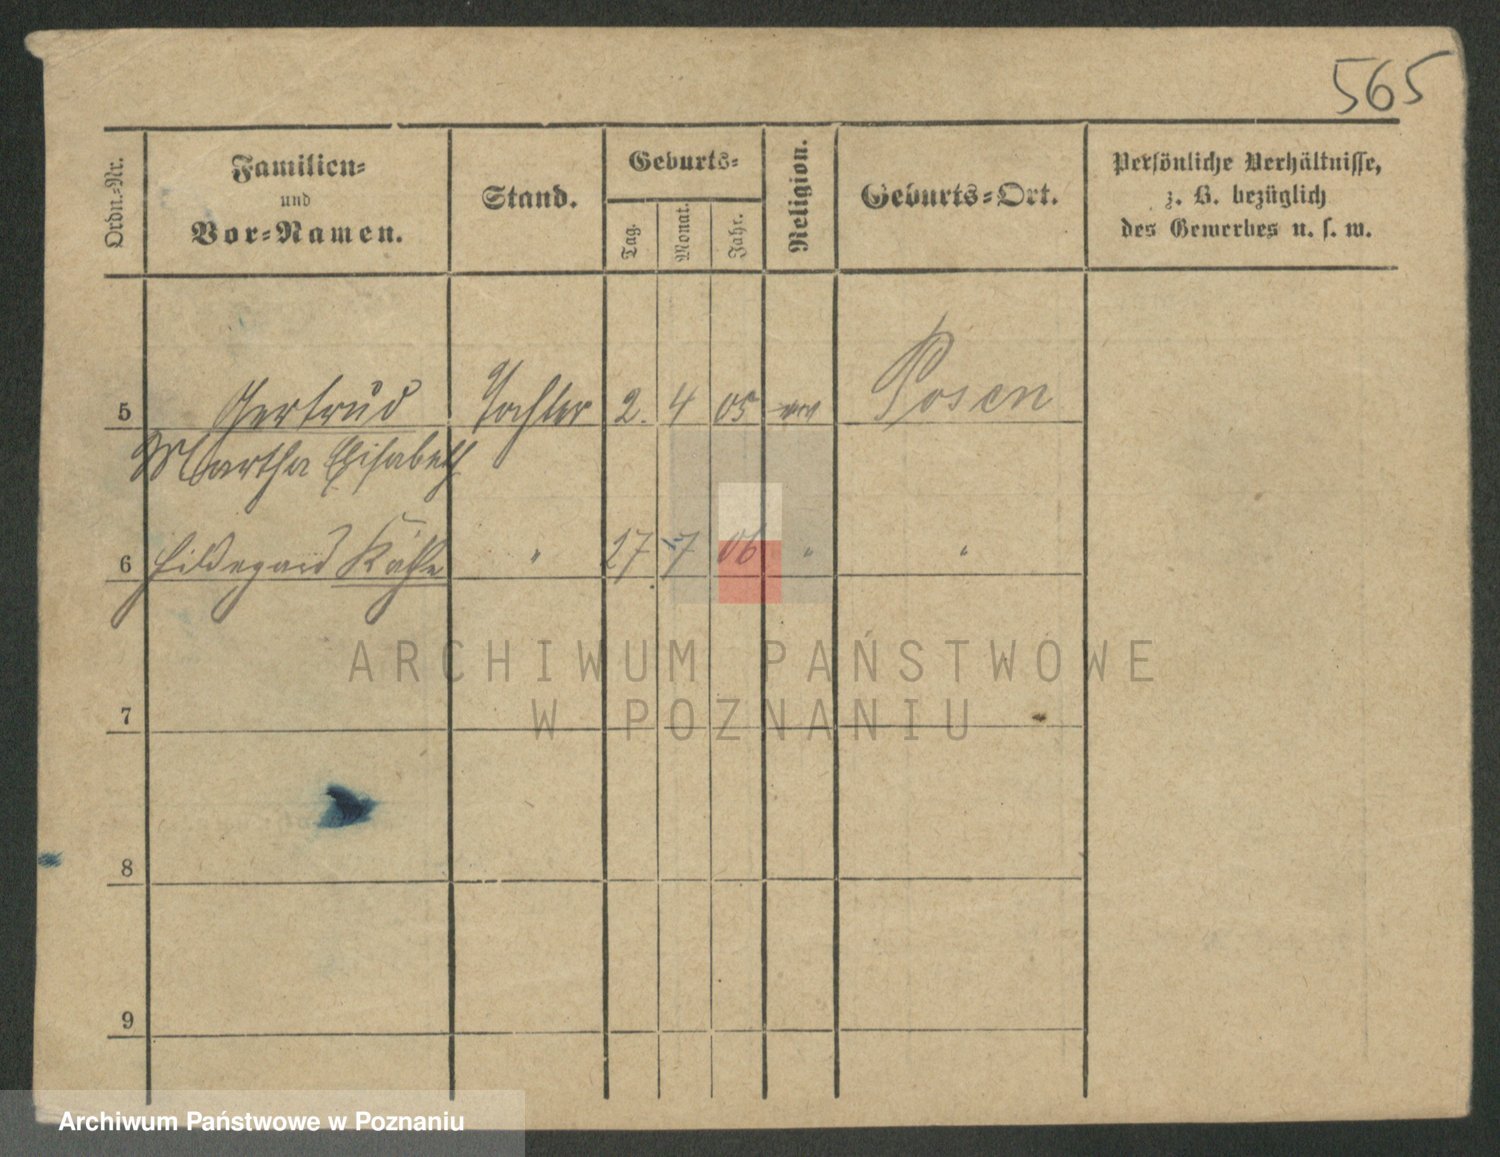 565
Ordn.-Nr.
Familien-
und
Vor-Namen.
Stand.
Geburts-
Tag.
Monat.
Jahr.
Religion.
Geburts-Ort.
Persönliche Verhältnisse,
z. B. bezüglich
des Gewerbes u. s. w.
5 Gertrud Tochter 2. 4 05 Posen
Martha Elisabeth
6 Hildegard Käthe " 27 7 06 " "
7
8
9
ARCHIWUM PAŃSTWOWE
W POZNANIU
Archiwum Państwowe w Poznaniu